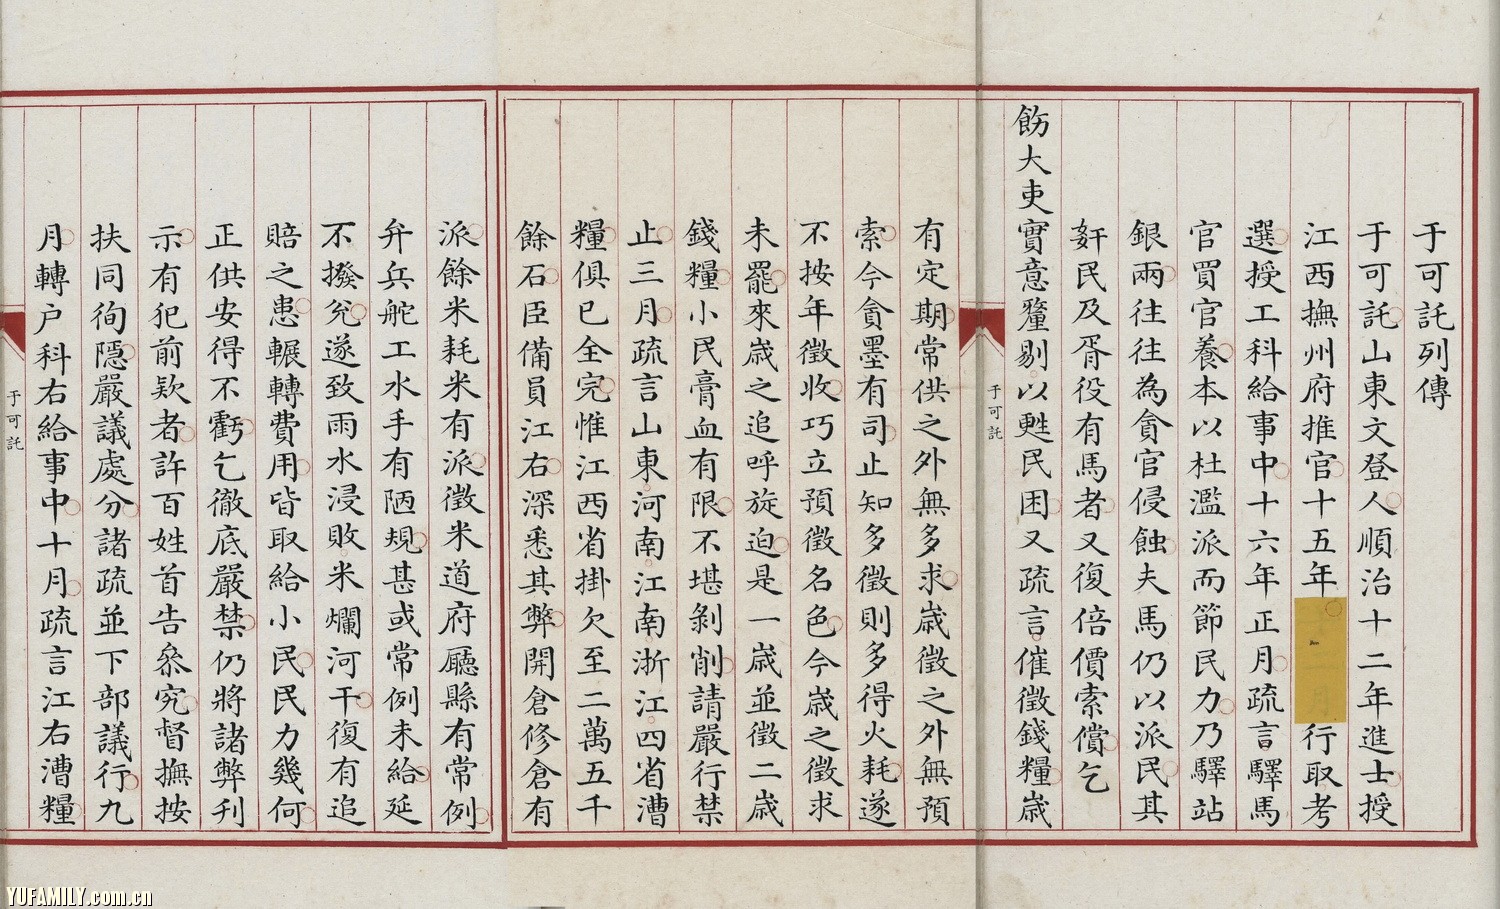 于可託列傳
于可託山東文登人順治十二年進士授
江西撫州府推官十五年行取考
選授工科給事中十六年正月疏言驛馬
官買官養本以杜濫派而節民力乃驛站
銀兩往往為貪官侵蝕夫馬仍以派民其
奸民及胥役有馬者又復倍價索償乞
飭大吏實意釐剔以甦民困又疏言催徵錢糧歲
于可託
有定期常供之外無多求歲徵之外無預
索今貪墨有司止知多徵則多得火耗遂
不按年徵收巧立預徵名色今歲之徵求
未罷來歲之追呼旋迫是一歲並徵二歲
錢糧小民膏血有限不堪剝削請嚴行禁
止三月疏言山東河南江南浙江四省漕
糧俱已全完惟江西省掛欠至二萬五千
餘石臣備員江右深悉其弊開倉修倉有
派餘米耗米有派徵米道府廳縣有常例
弁兵舵工水手有陋規甚或常例未給延
不撥兌遂致雨水浸敗米爛河干復有追
賠之患輾轉費用皆取給小民民力幾何
正供安得不虧乞徹底嚴禁仍將諸弊刊
示有犯前欵者許百姓首告叅究督撫按
扶同徇隱嚴議處分諸疏並下部議行九
月轉户科右給事中十月疏言江右漕糧
于可託
YUFAMILY.com.cn